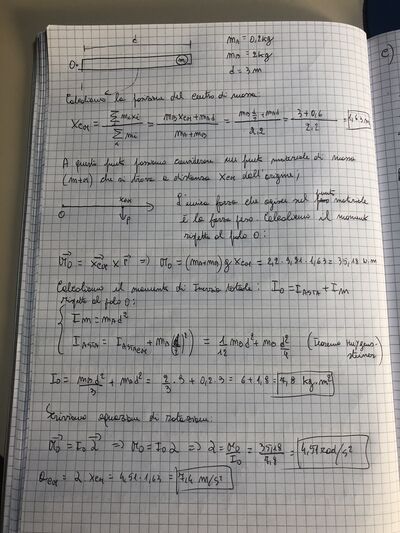 d
O
m
mA = 0,2 kg
mD = 2 kg
d = 3 m
c)
Calcoliamo la posizione del centro di massa:
XCM = Σ mi xi / Σ mi = mD XCM + mA d / mA + mD = mD d/2 + mA d / 2,2 = 3 + 0,6 / 2,2 =
A questo punto possiamo considerare un punto materiale di massa
che si trova a distanza XCM dall'origine,
O
XCM
P
L'unica forza che agisce sul punto materiale
è la forza peso. Calcoliamo il momento
rispetto al polo O:
= XCM x P => = (mA + mD) g XCM = 2,2 · 9,81 · 1,63 = 35,18 N·m
Calcoliamo il momento di Inerzia totale: IO = IASTA + Im
rispetto al polo O:
Im = mA d²
IASTA = IASTACM + mD (d/2)² = 1/12 mD d² + mD d²/4 (Teorema Huygens-
Steiner)
IO = mD d²/3 + mA d² = 2/3 · 9 + 0,2 · 9 = 6 + 1,8 = 7,8 kg·m²
Scriviamo equazioni di rotazione:
= IO α => = IO α => α = / IO = 35,18 / 7,8 = 4,51 rad/s²
aCM = α XCM = 4,51 · 1,63 = 7,4 m/s²